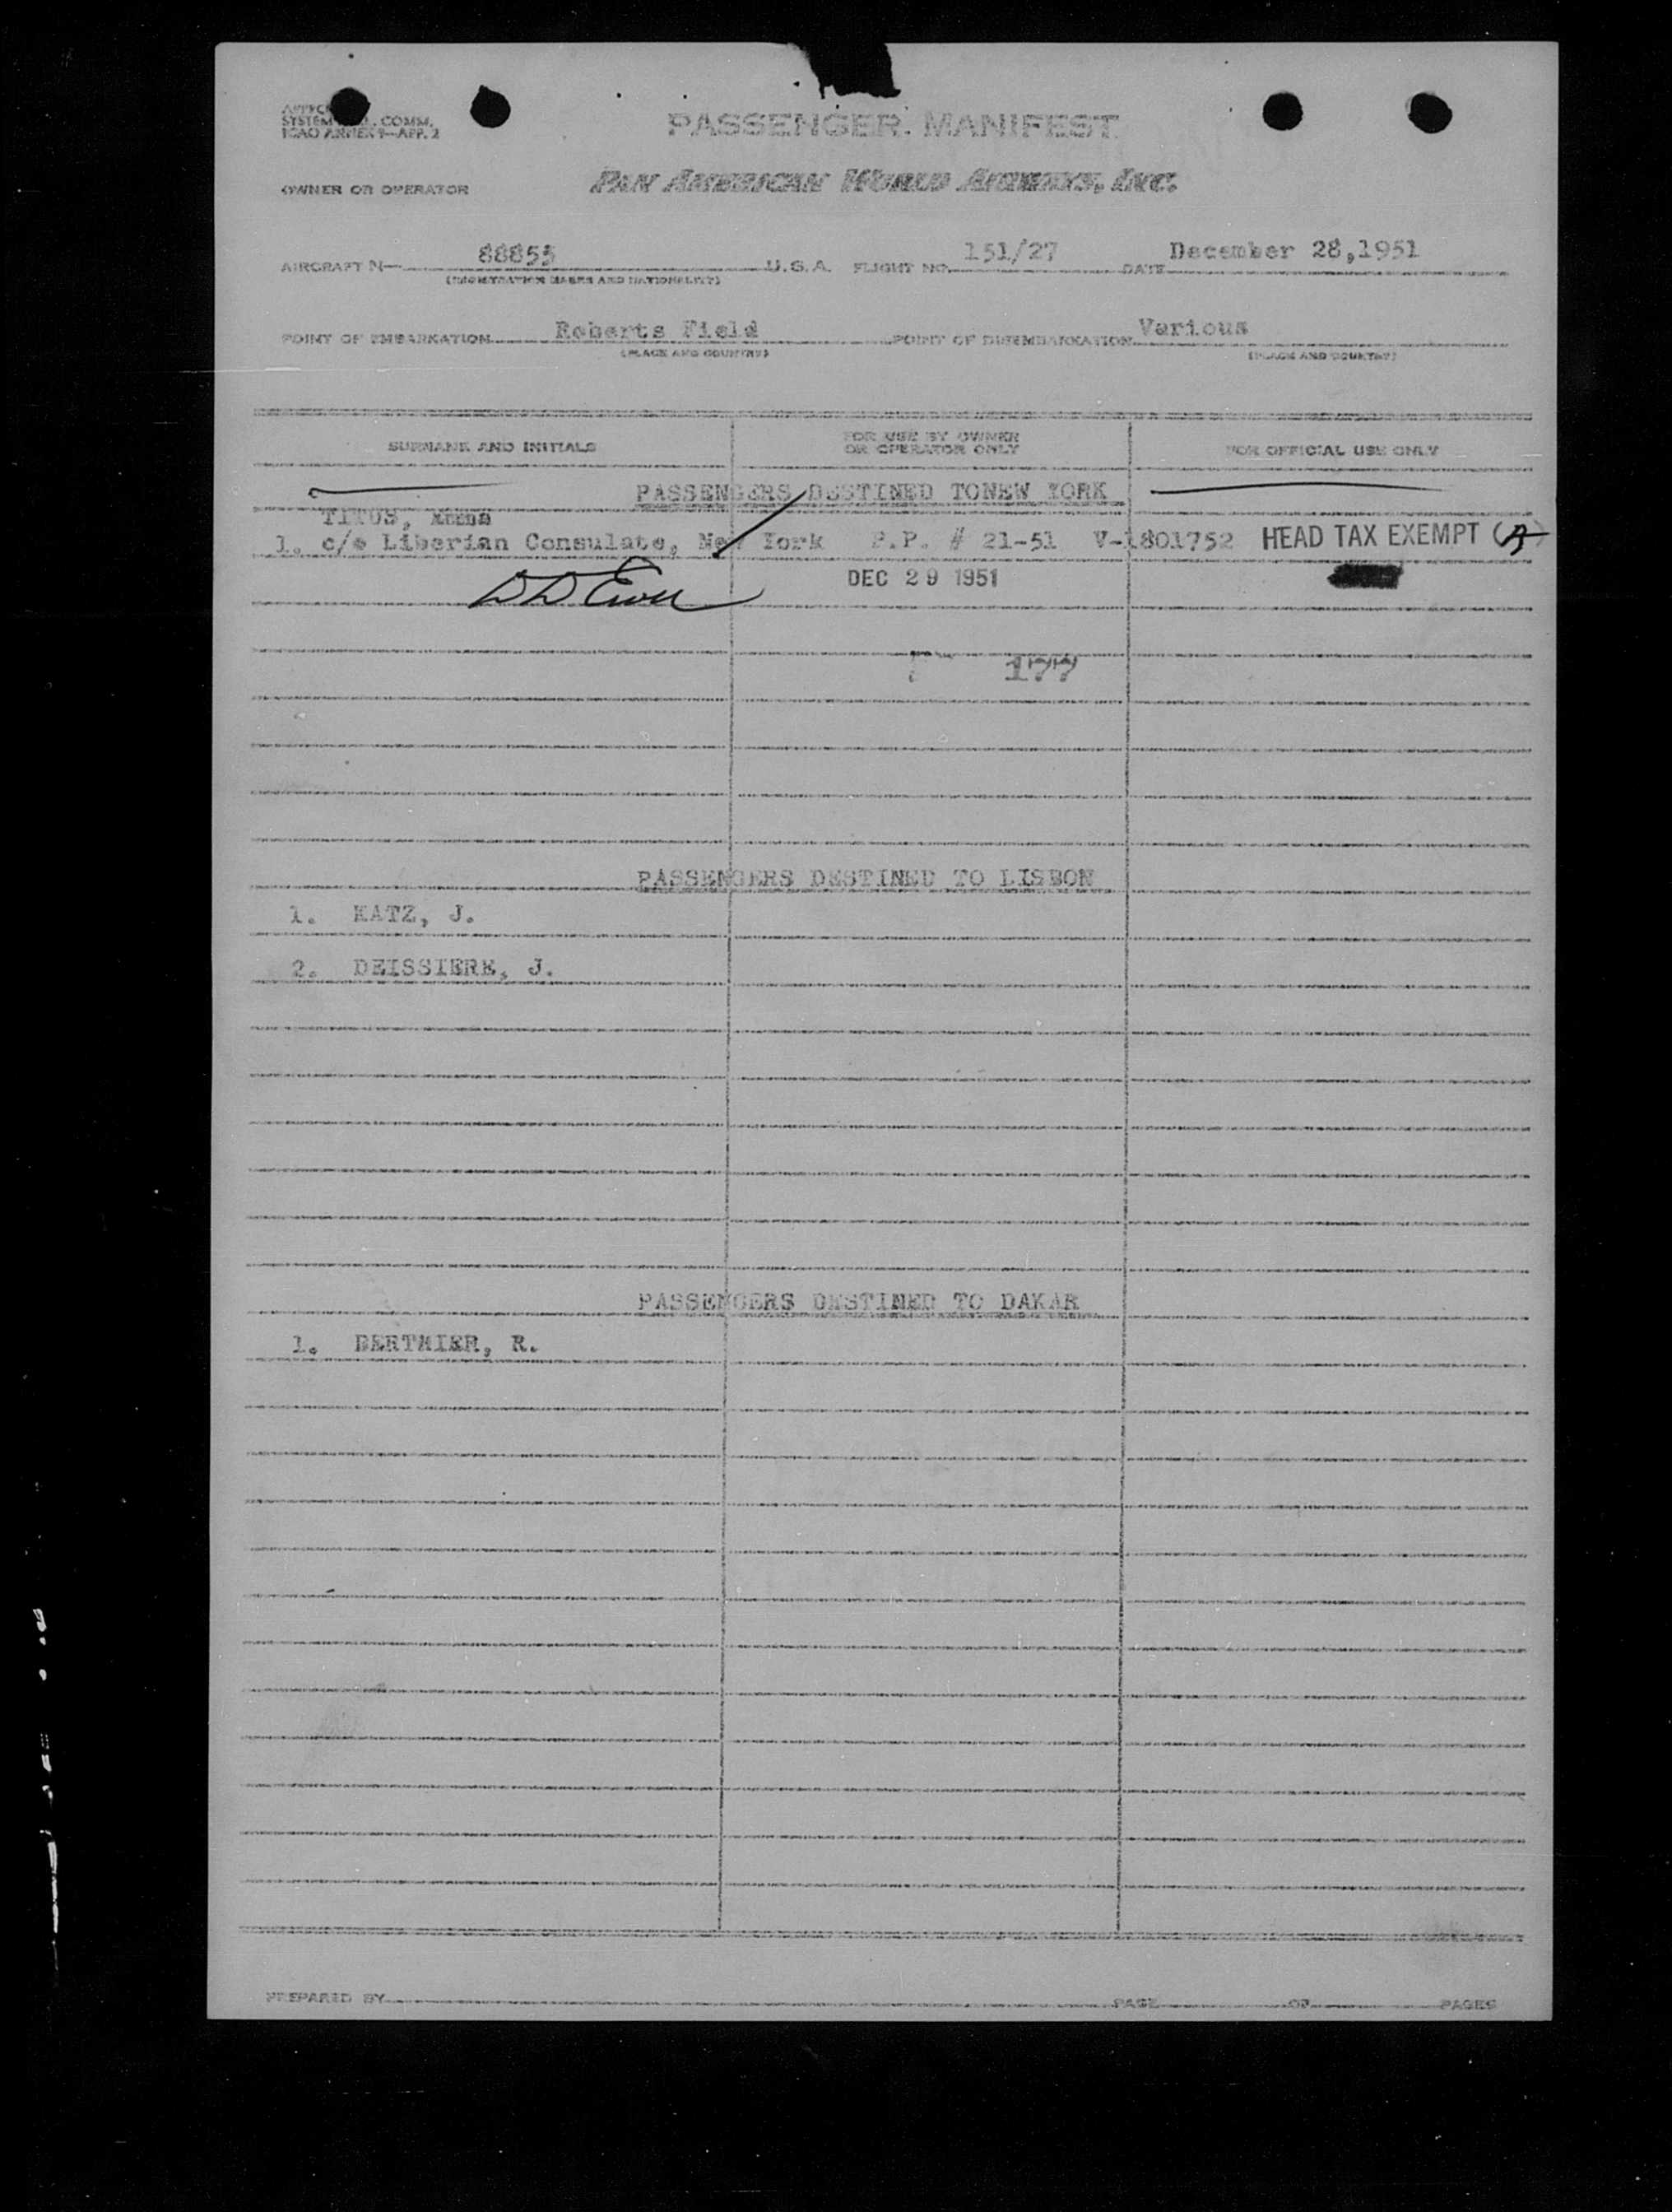 SYSTEM COMM.
ICAO ANNEX 9—APP. 2
PASSENGER MANIFEST
OWNER OR OPERATOR
PAN AMERICAN WORLD AIRWAYS, INC.
AIRCRAFT N— 88855 U.S.A. FLIGHT NO. 151/27 DATE December 28,1951
(REGISTRATION MARKS AND NATIONALITY)
POINT OF EMBARKATION Roberts Field POINT OF DISEMBARKATION Various
(PLACE AND COUNTRY) (PLACE AND COUNTRY)
SURNAME AND INITIALS
FOR USE BY OWNER
OR OPERATOR ONLY
FOR OFFICIAL USE ONLY
PASSENGERS DESTINED TONEW YORK
TITUS,
1. c/o Liberian Consulate, New York P.P. # 21-51 V-1801752 HEAD TAX EXEMPT
DEC 29 1951
177
PASSENGERS DESTINED TO LISBON
1. KATZ, J.
2. DEISSIERE, J.
PASSENGERS DESTINED TO DAKAR
1. BERTHIER, R.
PREPARED BY PAGE OF PAGES